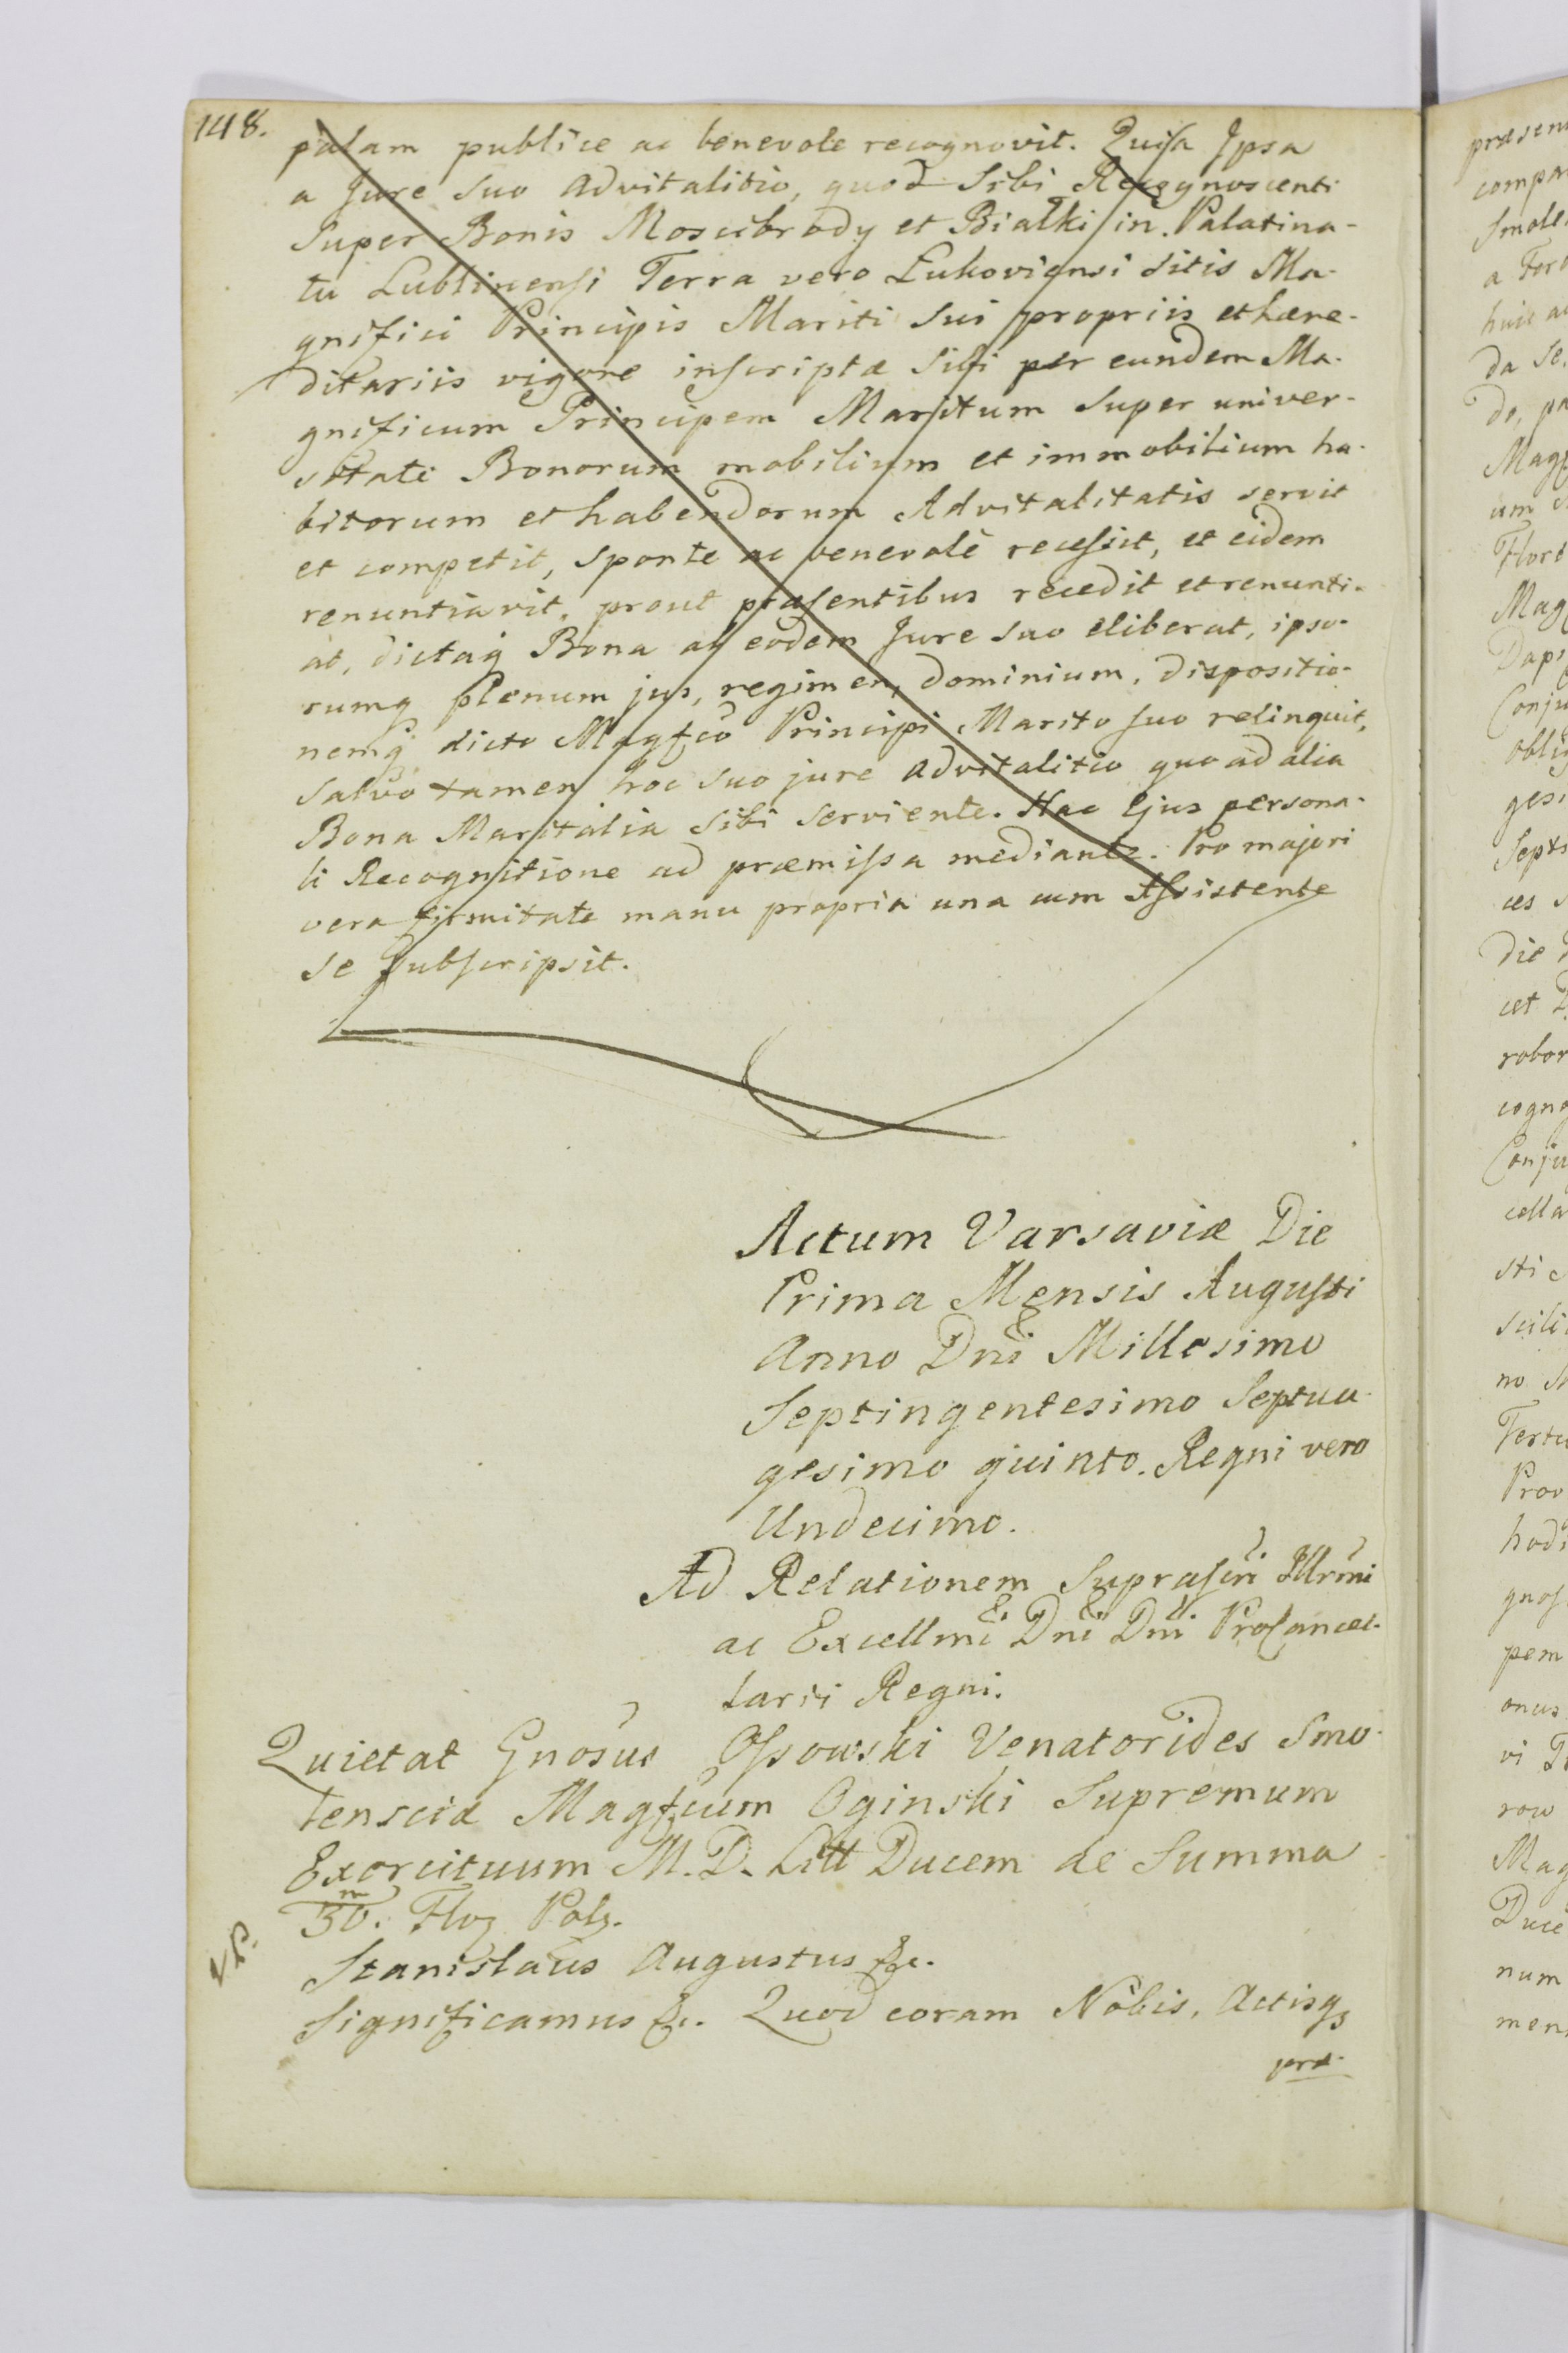 148.
palam publice ac benevole recognovit. Quia Ipsa
a Jure suo Advitalitio, quod Sibi Recognoscenti
Super Bonis Moscibrody et Bialki in Palatina-
tu Lublinensi Terra vero Lukoviensi sitis Ma-
gnifici Principis Mariti sui propriis et hære-
ditariis vigore inscriptæ sibi per eundem Ma-
gnificum Principem Maritum super univer-
sitate Bonorum mobilium et immobilium ha-
bitorum et habendorum Advitalitatis servit
et competit, sponte ac benevolè recessit, et eidem
renuntiavit, prout præsentibus recedit et renunti-
at, dictaq Bona ab eodem Jure suo eliberat, ipso-
rumq plenum jus, regimen, dominium, dispositio-
nemq dicto Magfco Principi Marito suo relinquit,
salvo tamen hoc suo jure advitalitio quo ad alia
Bona Maritalia sibi serviente. Hac Ejus persona-
li Recognitione ad præmissa mediante. Pro majori
vero firmitate manu propria una cum Assistente
se subscripsit.
Actum Varsaviæ Die
Prima Mensis Augusti
Anno Dni Millesimo
Septingentesimo Septua-
gesimo quinto. Regni vero
Undecimo.
Ad Relationem Suprascri Illrmi
ac Excellmi Dni Dni ProCancel-
larii Regni.
Quietat Gnosus Ossowski Venatorides Smo-
lensciæ Magfcum Oginski Supremum
Exercituum M. D. Litt Ducem de Summa
30. m Floz Polz.
Stanislaus Augustus &c.
Significamus &c. Quod coram Nobis, Actisqz
præ-